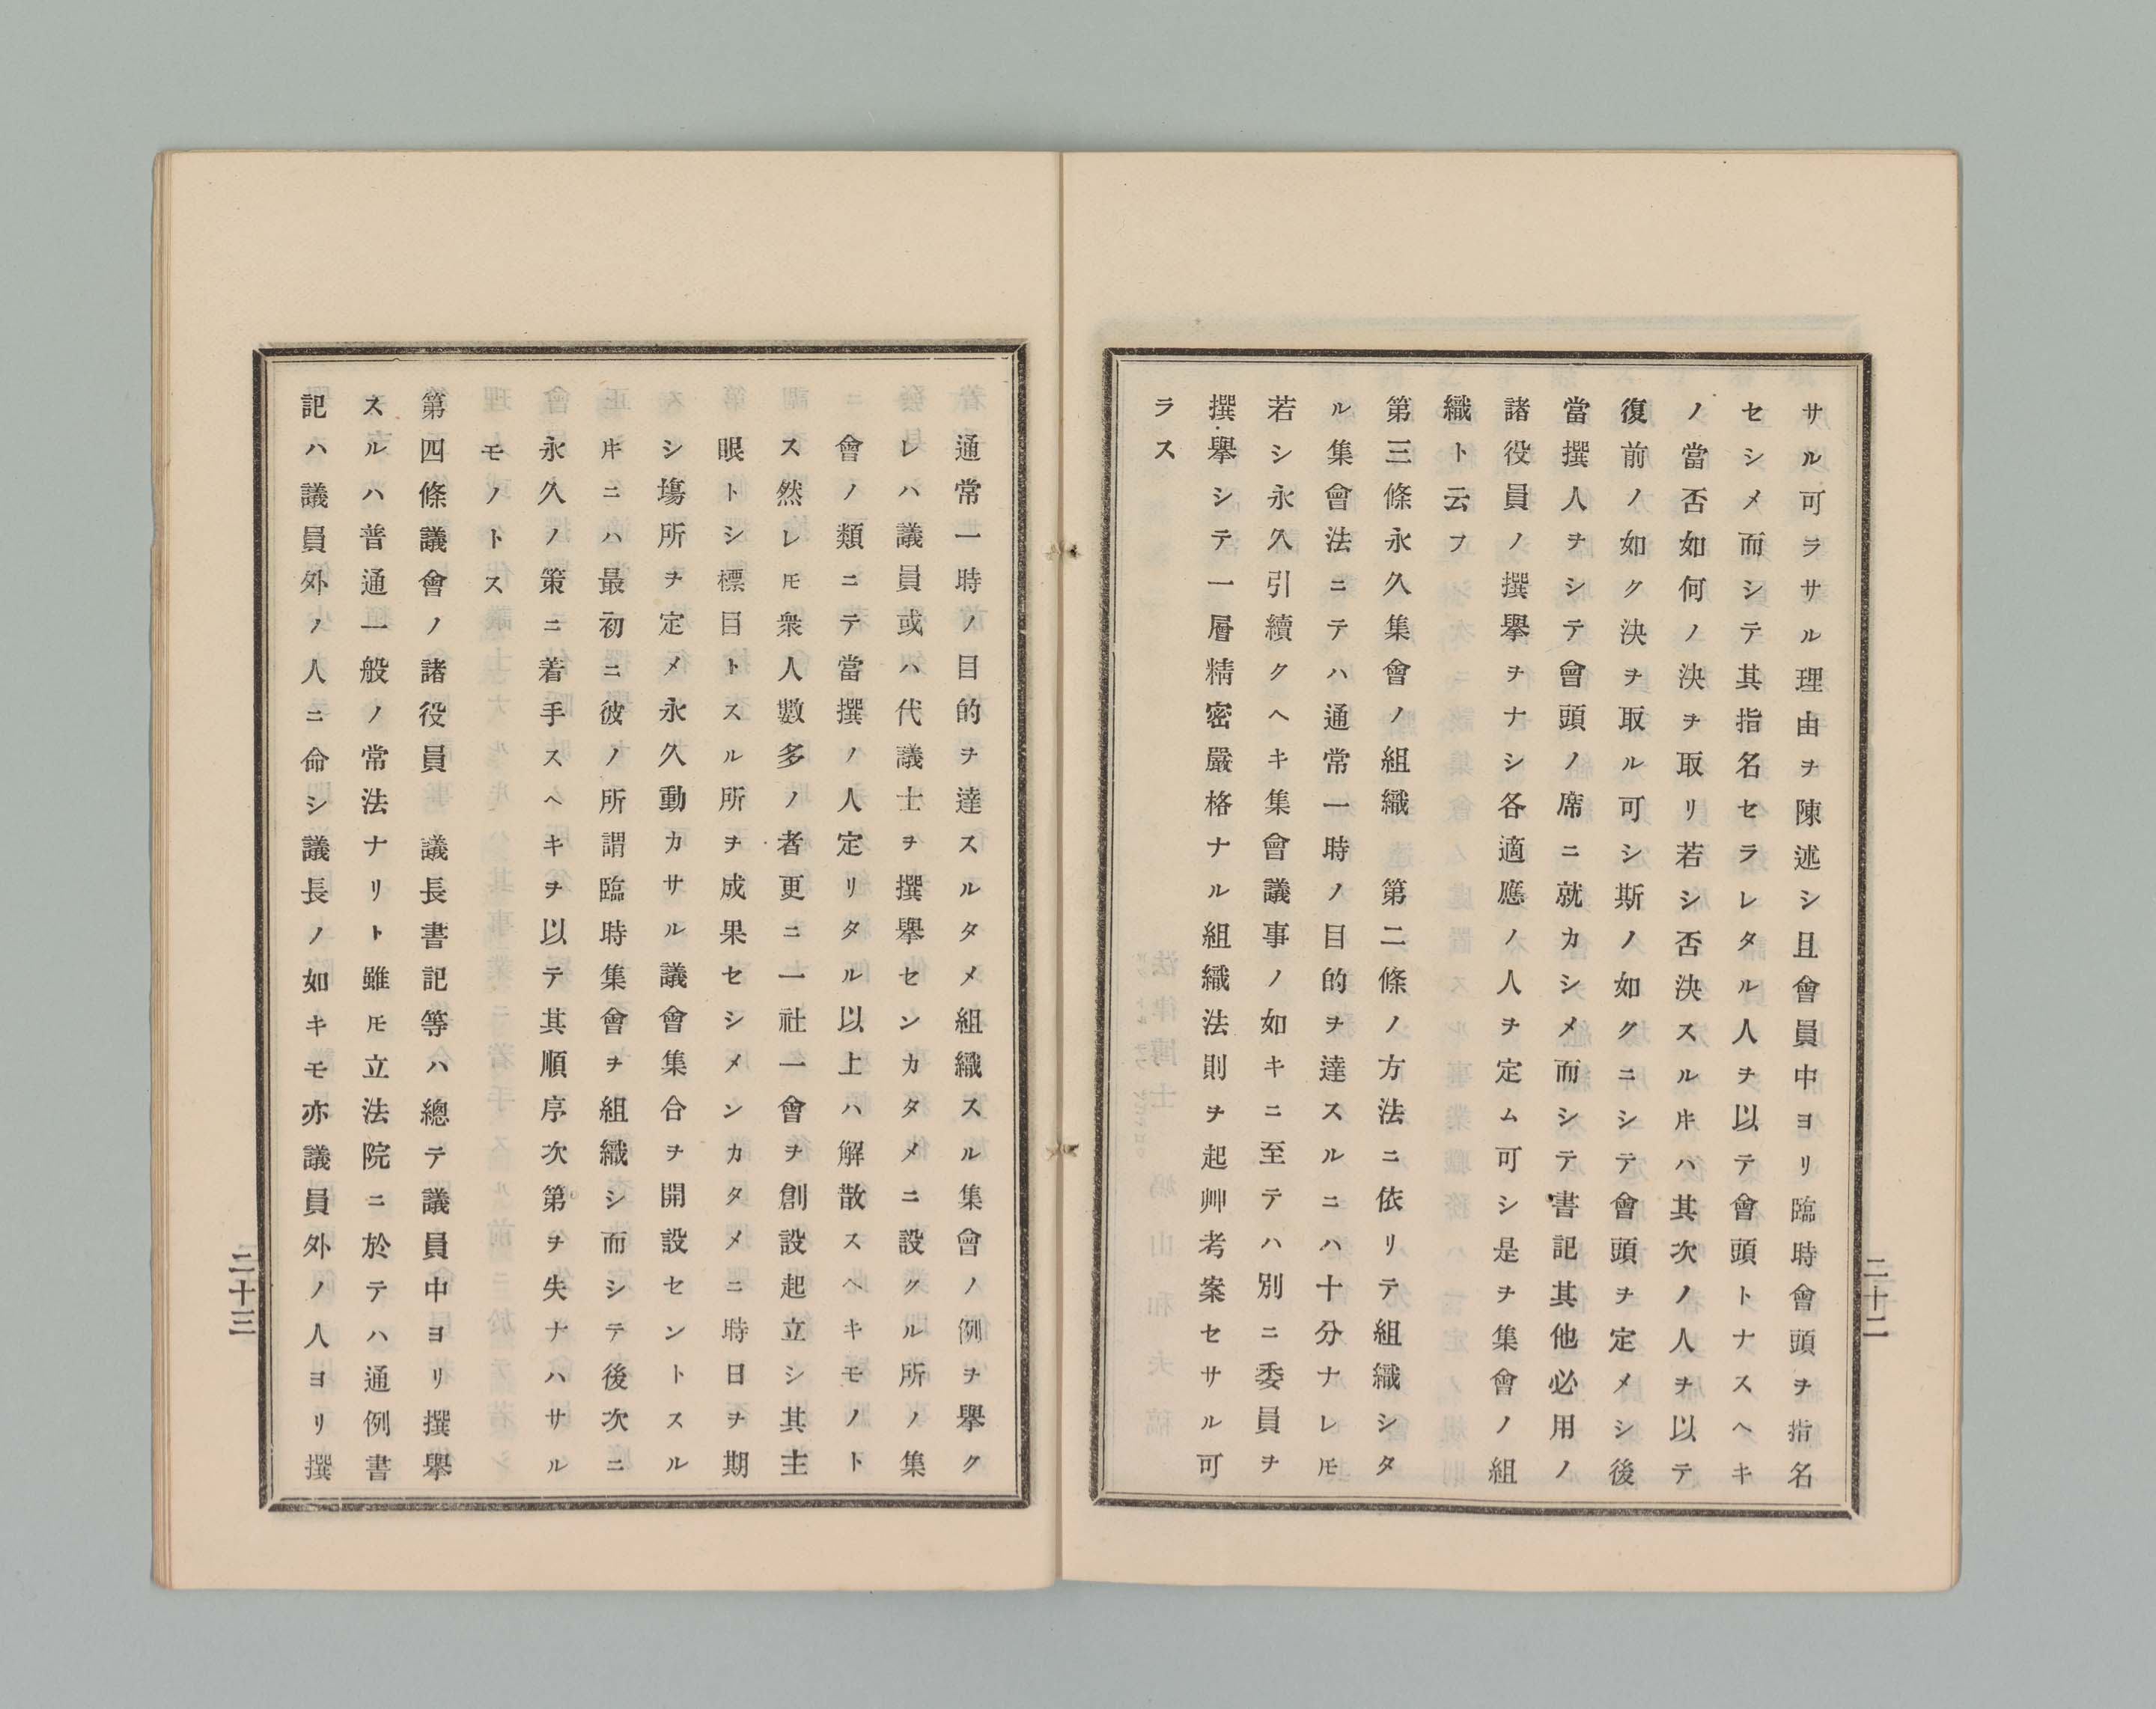 サル可ラサル理由ヲ陳述シ且會員中ヨリ臨時會頭ヲ指名
セシメ而シテ其指名セラレタル人ヲ以テ會頭トナスヘキ
ノ當否如何ノ決ヲ取リ若シ否決スルㇵ其次ノ人ヲ以テ
復前ノ如ク決ヲ取ル可シ斯ノ如クニシテ會頭ヲ定メシ後
當撰人ヲシテ會頭ノ席ニ就カシメ而シテ書記其他必用ノ
諸役員ノ撰擧ヲナシ各適應ノ人ヲ定ム可シ是ヲ集會ノ組
織ト云フ
第三條永久集會ノ組織　第二條ノ方法ニ依リテ組織シタ
ル集會法ニテハ通常一時ノ目的ヲ達スルニハ十分ナレ𪜈
若シ永久引續クヘキ集會議事ノ如キニ至テハ別ニ委員ヲ
撰擧シテ一層精密嚴格ナル組織法則ヲ起艸考案セサル可
ラス
二十二
通常一時ノ目的ヲ達スルタメ組織スル集會ノ例ヲ擧ク
レハ議員或ハ代議士ヲ撰擧センカタメニ設クル所ノ集
會ノ類ニテ當撰ノ人定リタル以上ハ解散スヘキモノト
ス然レ𪜈衆人數多ノ者更ニ一社一會ヲ創設起立シ其主
眼トシ標目トスル所ヲ成果セシメンカタメニ時日ヲ期
シ塲所ヲ定メ永久動カサル議會集合ヲ開設セントスル
𪜈ニハ最初ニ彼ノ所謂臨時集會ヲ組織シ而シテ後次ニ
永久ノ策ニ着手スヘキヲ以テ其順序次第ヲ失ナハサル
モノトス
第四條議會ノ諸役員　議長書記等ハ總テ議員中ヨリ撰擧
スルハ普通一般ノ常法ナリト雖𪜈立法院ニ於テハ通例書
記ハ議員外ノ人ニ命シ議長ノ如キモ亦議員外ノ人ヨリ撰
二十三